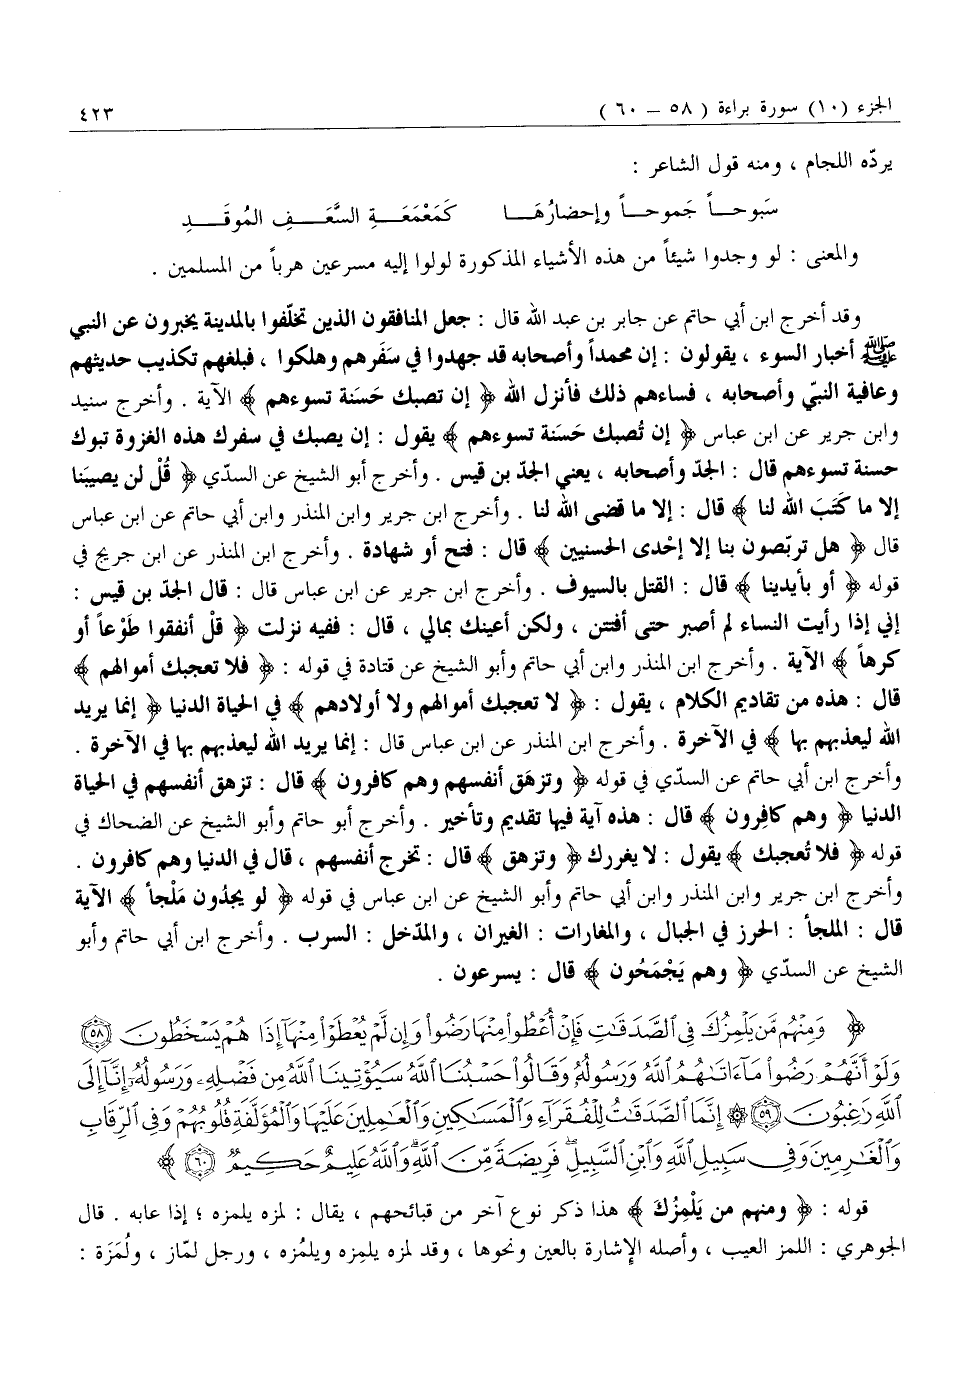 الجزء (١٠) سورة براءة ( ٥٨ – ٦٠ ) ٤٢٣
يردّه اللجام ، ومنه قول الشاعر :
سَبوحــاً جَموحــاً وإحضارُهَــا كَمَعْمَعَــةِ السَّعَــفِ المُوقَــدِ
والمعنى : لو وجدوا شيئاً من هذه الأشياء المذكورة لولوا إليه مسرعين هرباً من المسلمين .
وقد أخرج ابن أبي حاتم عن جابر بن عبد الله قال : جعل المنافقون الذين تخلّفوا بالمدينة يخبرون عن النبي
ﷺ أخبار السوء ، يقولون : إن محمداً وأصحابه قد جهدوا في سَفَرهم وهلكوا ، فبلغهم تكذيب حديثهم
وعافية النبيّ وأصحابه ، فساءهم ذلك فأنزل الله ﴿ إن تصبك حَسَنة تسوءهم ﴾ الآية . وأخرج سنيد
وابن جرير عن ابن عباس ﴿ إن تُصبك حَسَنة تسوءهم ﴾ يقول : إن يصبك في سفرك هذه الغزوة تبوك
حسنة تسوءهم قال : الجدّ وأصحابه ، يعني الجدّ بن قيس . وأخرج أبو الشيخ عن السدّي ﴿ قُلْ لن يصيبَنا
إلا ما كَتَبَ الله لنا ﴾ قال : إلا ما قضى الله لنا . وأخرج ابن جرير وابن المنذر وابن أبي حاتم عن ابن عباس
قال ﴿ هل تربّصون بنا إلا إحْدى الحسنيين ﴾ قال : فتح أو شهادة . وأخرج ابن المنذر عن ابن جريج في
قوله ﴿ أو بأيدينا ﴾ قال : القتل بالسيوف . وأخرج ابن جرير عن ابن عباس قال : قال الجدّ بن قيس :
إني إذا رأيت النساء لم أصبر حتى أفتتن ، ولكن أعينك بمالي ، قال : ففيه نزلت ﴿ قلْ أنفقوا طَوْعاً أو
كرهاً ﴾ الآية . وأخرج ابن المنذر وابن أبي حاتم وأبو الشيخ عن قتادة في قوله : ﴿ فلا تعجبك أموالهم ﴾
قال : هذه من تقاديم الكلام ، يقول : ﴿ لا تعجبك أموالهم ولا أولادهم ﴾ في الحياة الدنيا ﴿ إنما يريد
الله ليعذبهم بها ﴾ في الآخرة . وأخرج ابن المنذر عن ابن عباس قال : إنما يريد الله ليعذبهم بها في الآخرة .
وأخرج ابن أبي حاتم عن السدّي في قوله ﴿ وتزهَق أنفسهم وهم كافرون ﴾ قال : تزهق أنفسهم في الحياة
الدنيا ﴿ وهم كافِرون ﴾ قال : هذه آية فيها تقديم وتأخير . وأخرج أبو حاتم وأبو الشيخ عن الضحاك في
قوله ﴿ فلا تُعجبك ﴾ يقول : لا يغررك ﴿ وتزهق ﴾ قال : تخرج أنفسهم ، قال في الدنيا وهم كافرون .
وأخرج ابن جرير وابن المنذر وابن أبي حاتم وأبو الشيخ عن ابن عباس في قوله ﴿ لو يجدُون مَلْجأ ﴾ الآية
قال : الملجأ : الحرز في الجبال ، والمغارات : الغيران ، والمدّخل : السرب . وأخرج ابن أبي حاتم وأبو
الشيخ عن السدّي ﴿ وهم يَجْمَحُون ﴾ قال : يسرعون .
﴿ وَمِنْهُم مَّن يَلْمِزُكَ فِي ٱلصَّدَقَٰتِ فَإِنْ أُعْطُوا۟ مِنْهَا رَضُوا۟ وَإِن لَّمْ يُعْطَوْا۟ مِنْهَآ إِذَا هُمْ يَسْخَطُونَ ٥٨
وَلَوْ أَنَّهُمْ رَضُوا۟ مَآ ءَاتَىٰهُمُ ٱللَّهُ وَرَسُولُهُۥ وَقَالُوا۟ حَسْبُنَا ٱللَّهُ سَيُؤْتِينَا ٱللَّهُ مِن فَضْلِهِۦ وَرَسُولُهُۥٓ إِنَّآ إِلَى
ٱللَّهِ رَٰغِبُونَ ٥٩ ۞ إِنَّمَا ٱلصَّدَقَٰتُ لِلْفُقَرَآءِ وَٱلْمَسَٰكِينِ وَٱلْعَٰمِلِينَ عَلَيْهَا وَٱلْمُؤَلَّفَةِ قُلُوبُهُمْ وَفِي ٱلرِّقَابِ
وَٱلْغَٰرِمِينَ وَفِي سَبِيلِ ٱللَّهِ وَٱبْنِ ٱلسَّبِيلِ ۖ فَرِيضَةً مِّنَ ٱللَّهِ ۗ وَٱللَّهُ عَلِيمٌ حَكِيمٌ ٦٠ ﴾
قوله : ﴿ ومنهم من يَلْمِزُكَ ﴾ هذا ذكر نوع آخر من قبائحهم ، يقال : لمزه يلمزه ؛ إذا عابه . قال
الجوهري : اللمز العيب ، وأصله الإشارة بالعين ونحوها ، وقد لمزه يلمِزه ويلمُزه ، ورجل لمّاز ، ولُمَزَة :